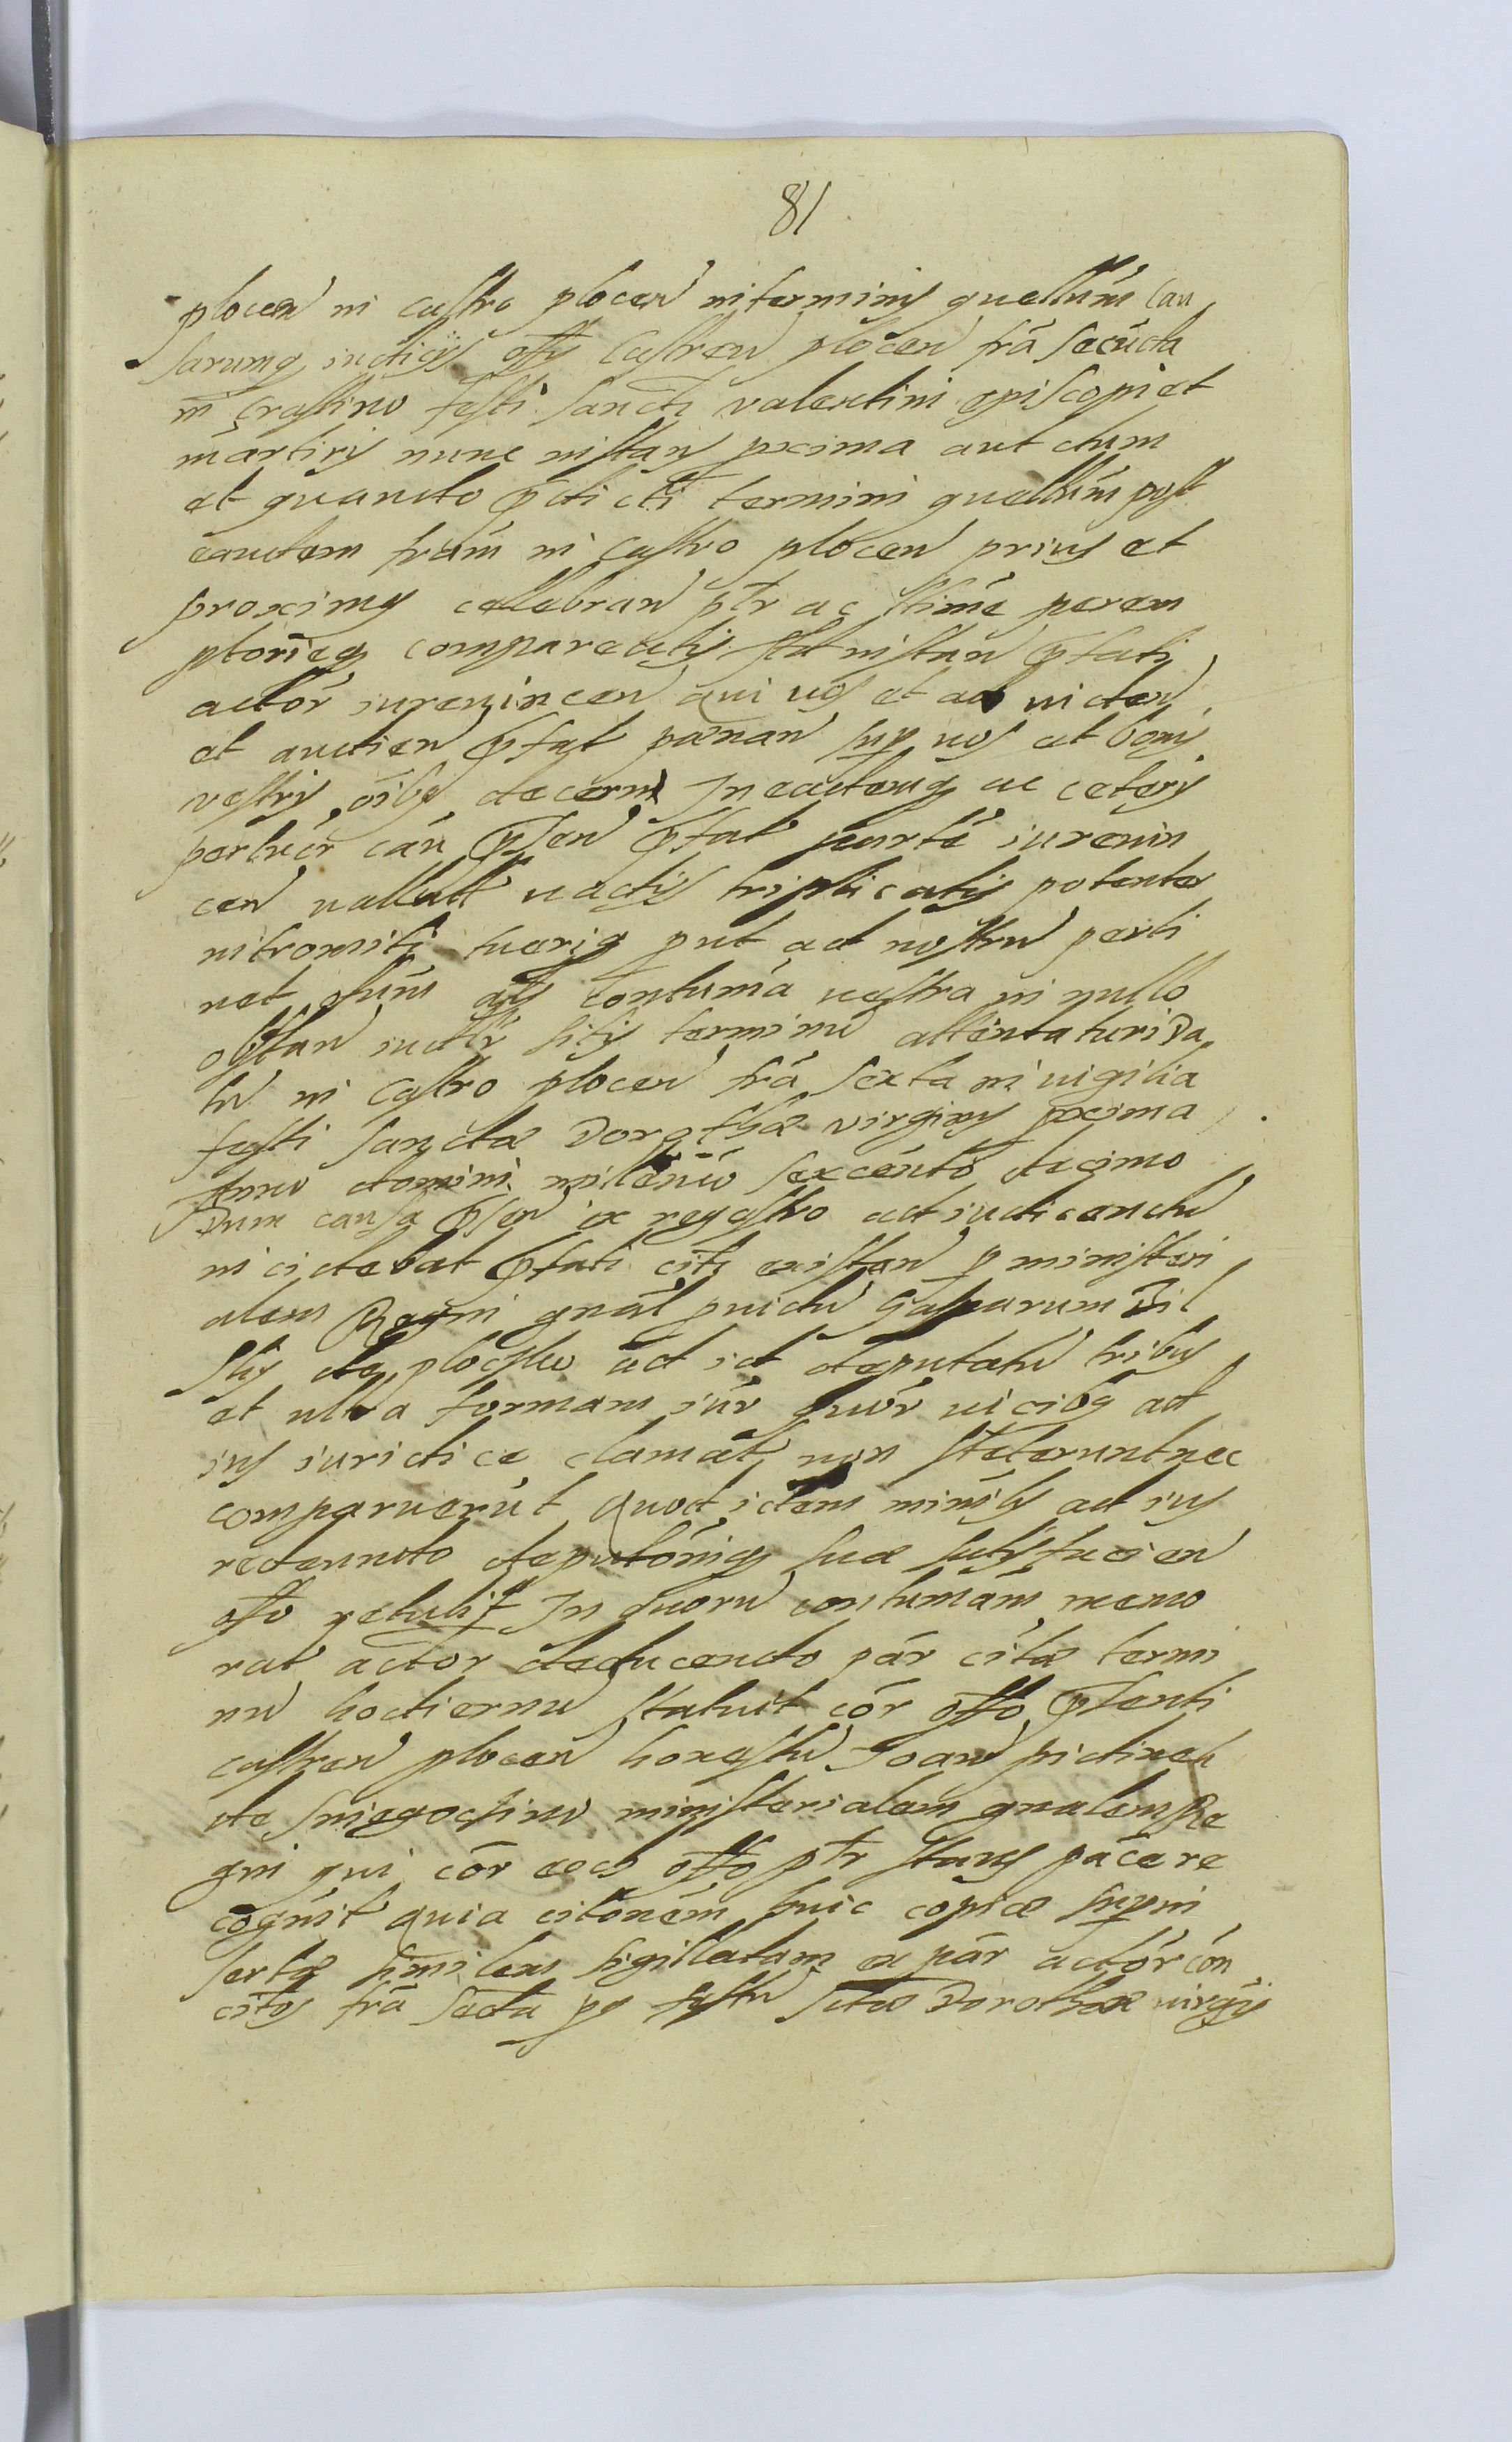 81
plocen in castro plocen in terminis querellarum cau
sarumq iudicijs offy Castren plocen fra secuda
in Crastino festi sancti valentini episcopi et
martiris nunc instan pxima aut dum
et quando pdicti termini querellarum post
eandem fram in castro plocen prius et
proximus celebran ptr ac ptime perem
ptorieq compareatis instan pfati
actor iurevincen qui vos et ad viden
et audien pfat pænam sup vos et bonis
vestris oibq decerni In eademq ac ceteris
pertucr can psen pfat parte iurevin
cen vallalt vadijs triplicatis potenter
intromitti tueriq put ad nostru perti
net aliis contuma vestra in nullo
obstan sitis terminu attentaturi Da
tu in Castro plocen fra sexta in vigilia
festi Sanctæ Dorothæ virginis pxima
Anno domini milenio sexcento decimo
Dum causa psen ex regestro ad iudicandu
incidebat pfati citi existen p ministeri
alem Regni gnal puidu Gasparum Bil
sky de plocsko ad id deputatu tribus
et ultra formam iur quor vicibq ad
ius iuridice clamati non steterunt nec
comparuerut Quod idem minilis ad ius
redeundo deputoniq suæ satisfacien
offo retulit In quoru contumam memo
rat actor deducendo par cita termi
nu hodiernu statuit cor offo psenti
castren plocen honestu Joan pidinek
de Sniegocino ministerialem gnalem Re
gni qui cor eod offo ptr stans pacere
cognit Quia citonem huic copiæ supin
sertæ similem sigillatam ex par actor con
citos fra secta pg festu Sctæ Dorothæ virgis